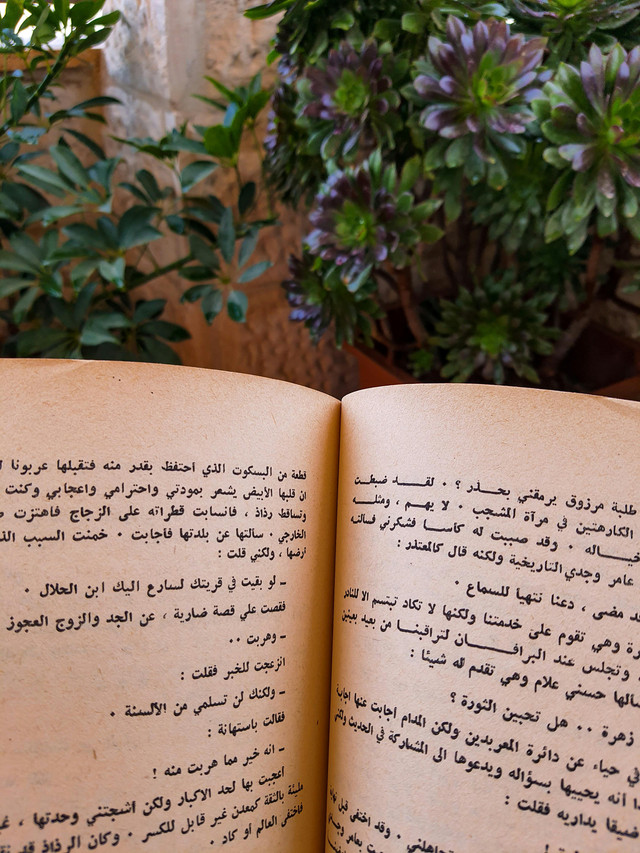 طلبة مرزوق يرمقني بحذر ؟ • لقد ضبطت
الكارهتين في مرآة المشجب • لا يهم ، ومثله
خياله • وقد صببت له كأسا فشكرني فسألته
عامر وجدي التاريخية ولكنه قال كالمعتذر :
مضى ، دعنا نتهيأ للسماع •
وهي تقوم على خدمتنا ولكنها لا تكاد تبتسم الا للنادر
وتجلس عند البرافان لتراقبنا من بعيد بعينين
حسني علام وهي تقدم له شيئا :
زهرة •• هل تحبين الثورة ؟
في حياء عن دائرة المعربدين ولكن المدام اجابت عنها اجابة
انه يحييها بسؤاله ويدعوها الى المشاركة في الحديث ولكني
ضيقا يداريه فقلت :
!
• وقد اختفى قبل
قطعة من البسكوت الذي احتفظ بقدر منه فتقبلها عربونا
ان قلبها الأبيض يشعر بمودتي واحترامي واعجابي وكنت
وتساقط رذاذ ، فانسابت قطراته على الزجاج فاهتزت
الخارجي • سألتها عن بلدتها فأجابت • خمنت السبب
أرضها ، ولكني قلت :
ـ لو بقيت في قريتك لسارع اليك ابن الحلال •
فقصت علي قصة ضارية ، عن الجد والزوج العجوز
ـ وهربت ••
انزعجت للخبر فقلت :
ـ ولكنك لن تسلمي من الألسنة •
فقالت باستهانة :
ـ انه خير مما هربت منه !
اعجبت بها لحد الاكبار ولكن اشجتني وحدتها ،
مليئة بالثقة كمعدن غير قابل للكسر • وكان الرذاذ قد
فاختفى العالم أو كاد •